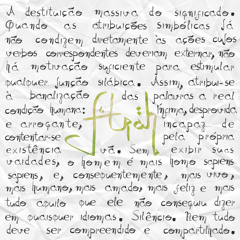 A destituição massiva do significado.
Quando as atribuições simbólicas já
não condizem diretamente às ações cujos
verbos correspondentes deveriam externar, não
há motivação suficiente para estimular
qualquer junção silábica. Assim, atribui-se
à banalização das palavras a real
condição humana: ínfima, desprovida
e arrogante, incapaz de
contentar-se pela própria
existência vã. Sem exibir suas
vaidades, o homem é mais homo sapiens
sapiens, e, consequentemente, mais vivo,
mais humano, mais amado, mais feliz e mais
tudo aquilo que ele não conseguiu dizer
em quaisquer idiomas. Silêncio. Nem tudo
deve ser compreendido e compartilhado.